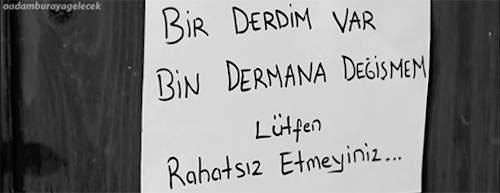 oadamburayagelecek
BİR DERDİM VAR
BİN DERMANA DEĞİŞMEM
Lütfen
Rahatsız Etmeyiniz...